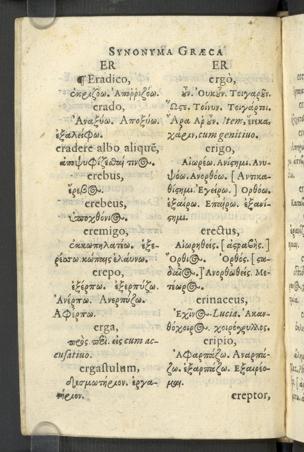 SYNONYMA GRÆCA
ER
¶Eradico,
ἐκριζόω. Ἀπορριζόω.
erado,
Ἀναξύω. Ἀποξύω.
ἐξαλείφω.
eradere albo aliquẽ,
ἀποψηφίζεσθαί τινος.
erebus,
ἔρεβος.
erebeus,
ὑποχθόνιος.
eremigo,
ἐκκωπηλατέω. ἐξε-
ρέσσω κώπαις ἐλαύνω.
erepo,
ἐξέρπω. ἐξερπύζω.
Ἀνέρπω. Ἀνερπύζω.
Ἀφέρπω.
erga,
πρὸς περὶ. εἰς cum ac-
cusatiuo.
ergastulum,
δεσμωτήριον. ἐργα-
τήριον.
ER
ergò,
οὖν. Οὐκοῦν. Τοιγαροῦν.
Ὥστε. Τοίνυν. Τοιγάρτοι.
Ἆρα Ἆρ' οὖν. Item, ἕνεκα.
χάριν. cum genitiuo.
erigo,
Αἰωρέω. Ἀνίστημι. Ἀνυ-
ψόω. Ἀνορθόω. [Ἀντικα-
θίστημι. Ἐγείρω.] Ὀρθόω.
ἐξαίρω. Ἐπαίρω. ἐξανί-
στημι.
erectus,
Αἰωρηθείς. [ἀστραβής.]
Ὄρθιος. Ὀρθός. [στα-
διαῖος.] Ἀνορθωθείς. Με-
τέωρος.
erinaceus,
Ἐχῖνος Lucia. Ἀκαν-
θόχοιρος. χοιρόγρυλλος.
eripio,
Ἀφαρπάζω. Ἀναρπά-
ζω. ἐξαρπάζω. Ἐξαιρέο-
μαι.
ereptor,